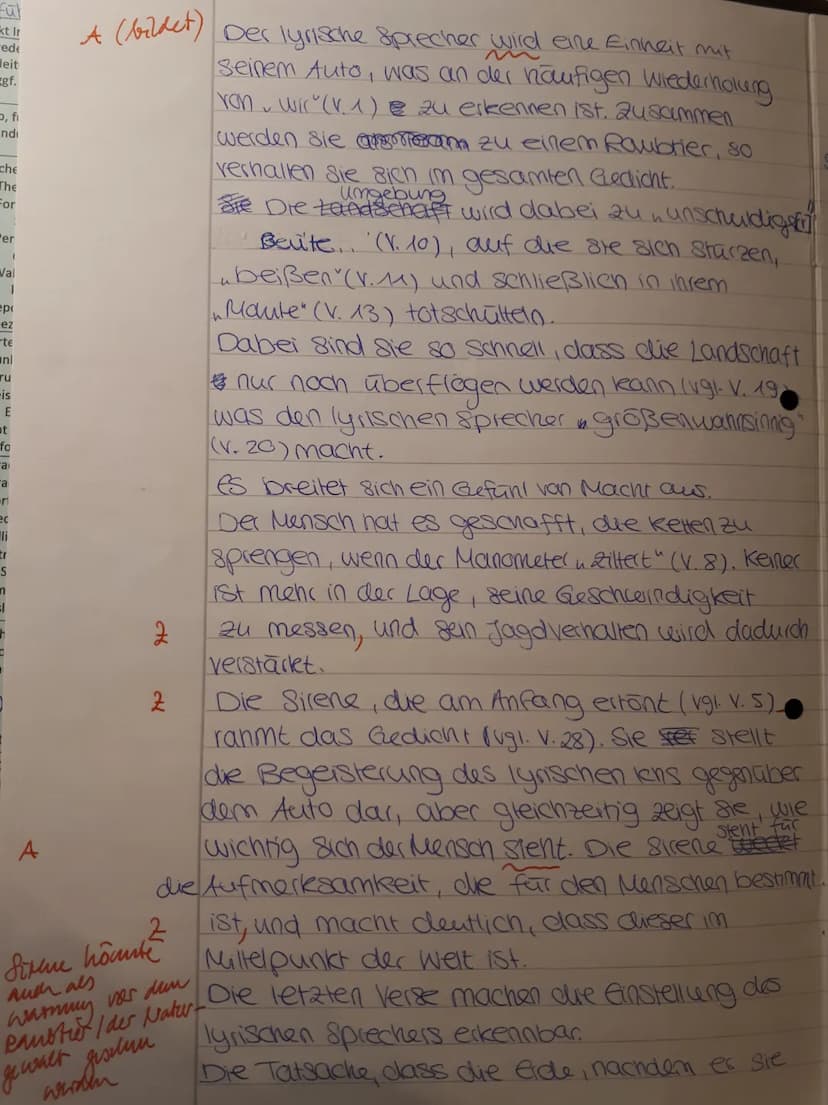 A (bildet) Der lyrische Sprecher wird eine Einheit mit
seinem Auto, was an der häufigen Wiederholung
von „wir" (V. 1) zu erkennen ist. Zusammen
werden sie zu einem Raubtier, so
verhalten sie sich im gesamten Gedicht.
Umgebung
Die Landschaft wird dabei zu „unschuldige[r]
Beute.." (V. 10), auf die sie sich stürzen,
„beißen" (V. 11) und schließlich in ihrem
„Maule" (V. 13) totschütteln.
Dabei sind sie so schnell, dass die Landschaft
nur noch überflogen werden kann (vgl. V. 19
was den lyrischen Sprecher „größenwahnsinnig"
(V. 20) macht.
Es breitet sich ein Gefühl von Macht aus.
Der Mensch hat es geschafft, die Ketten zu
sprengen, wenn der Manometer „zittert" (V. 8). Keiner
ist mehr in der Lage, seine Geschwindigkeit
Z zu messen, und sein Jagdverhalten wird dadurch
verstärkt.
Z Die Sirene, die am Anfang ertönt (vgl. V. 5)
rahmt das Gedicht (vgl. V. 28). Sie stellt
die Begeisterung des lyrischen Ichs gegenüber
dem Auto dar, aber gleichzeitig zeigt sie, wie
steht für
A wichtig sich der Mensch sieht. Die Sirene
die Aufmerksamkeit, die für den Menschen bestimmt
Z ist, und macht deutlich, dass dieser im
Mittelpunkt der Welt ist.
Die letzten Verse machen die Einstellung des
lyrischen Sprechers erkennbar.
Die Tatsache, dass die Erde, nachdem es sie
Sirene könnte
auch als
Warnung vor dem
Raubtier/der Natur-
gewalt gesehen
werden